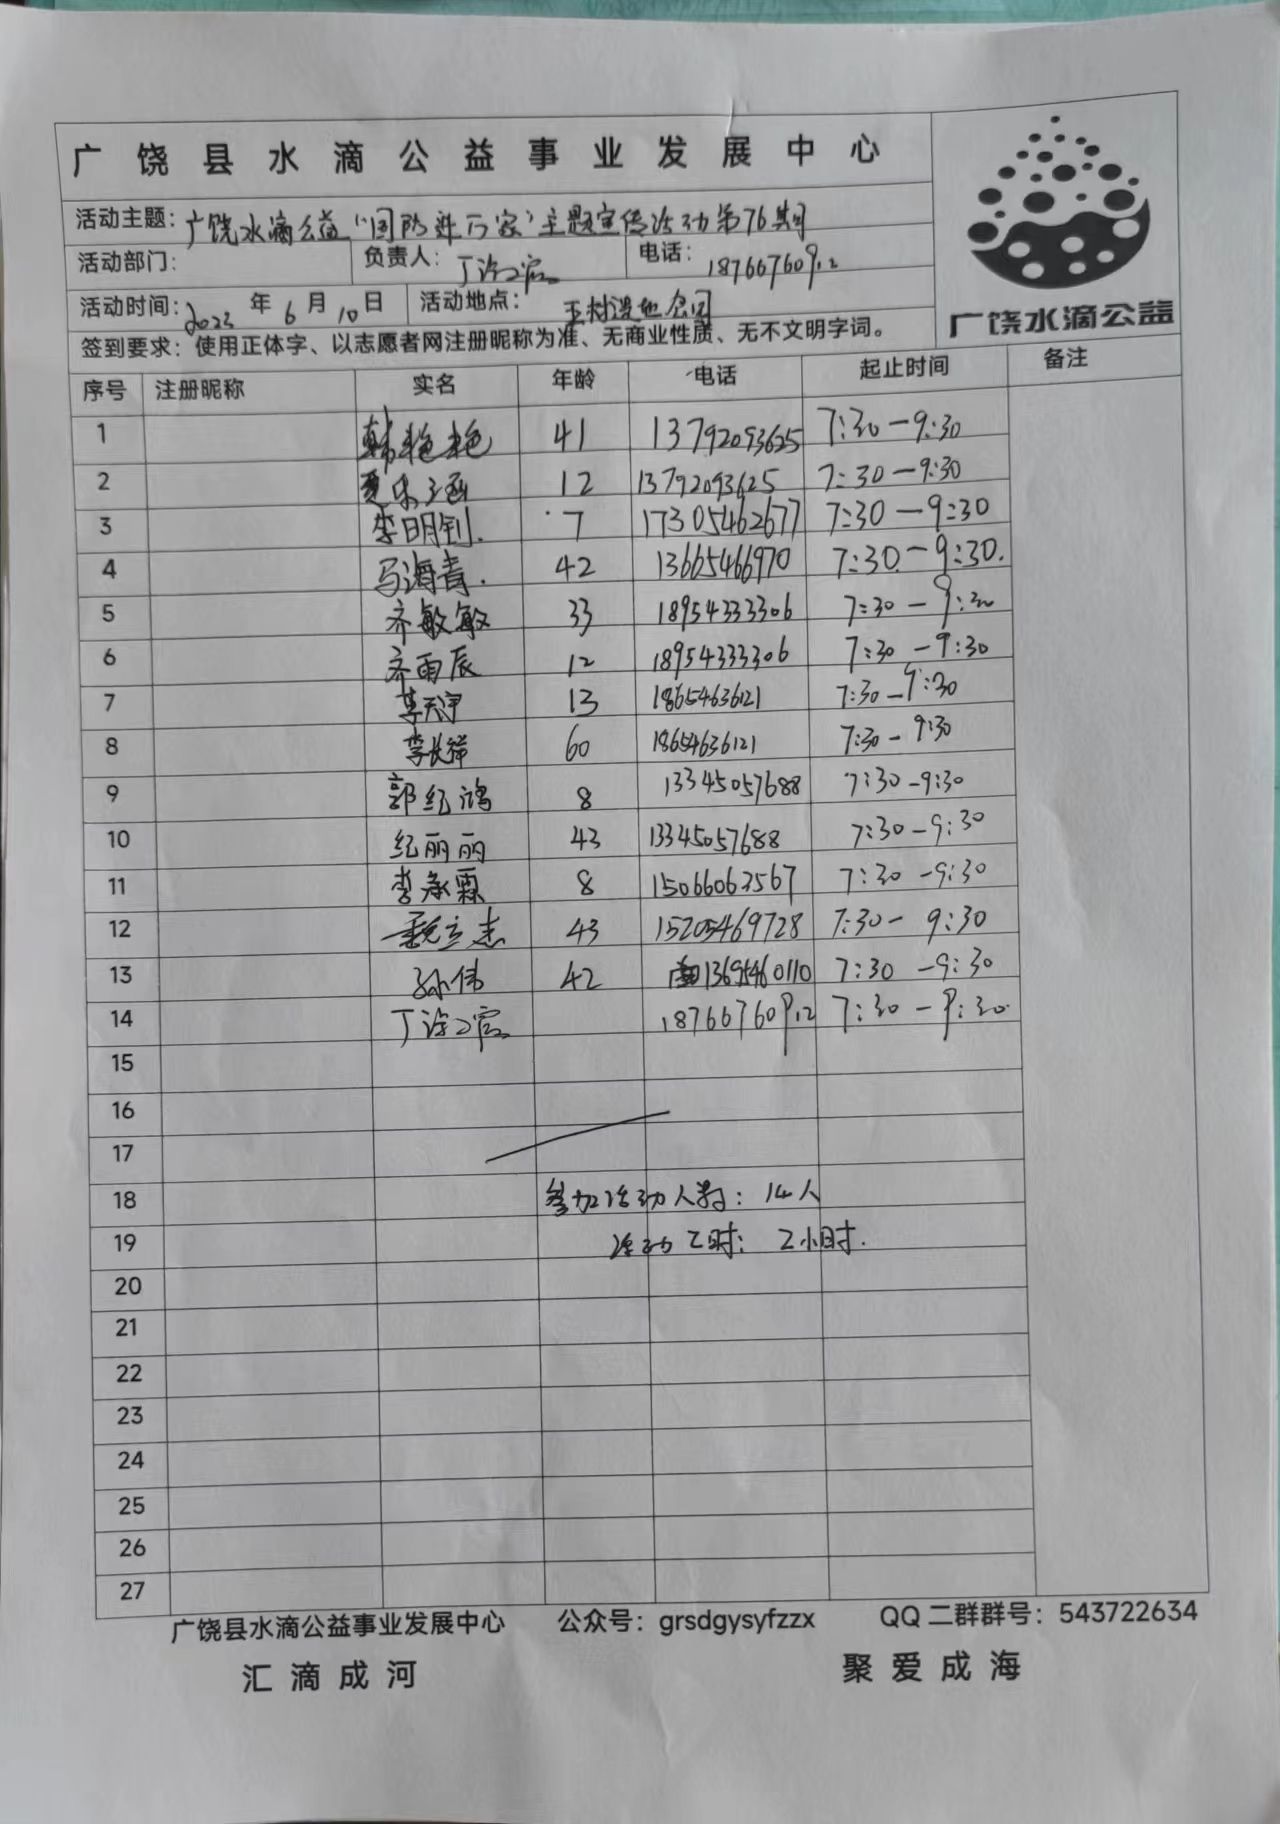 广饶县水滴公益事业发展中心
活动主题：广饶水滴公益“国防进万家”主题宣传活动第76期
活动部门： 负责人：丁 电话：18766760912
活动时间：2023年6月10日 活动地点：王村湿地公园
广饶水滴公益
签到要求：使用正体字、以志愿者网注册昵称为准、无商业性质、无不文明字词。
序号 注册昵称 实名 年龄 电话 起止时间 备注
1 韩艳艳 41 13792093625 7:30-9:30
2 夏 涵 12 13792093625 7:30-9:30
3 李明钊. 7 17305462677 7:30-9:30
4 马海青. 42 13665466970 7:30-9:30.
5 齐敏敏 33 18954333306 7:30-9:30
6 齐雨辰 12 18954333306 7:30-9:30
7 李天宇 13 18654636121 7:30-9:30
8 李长祥 60 18654636121 7:30-9:30
9 郭纪鸿 8 13345057688 7:30-9:30
10 纪丽丽 43 13345057688 7:30-9:30
11 李承霖 8 15066063567 7:30-9:30
12 魏立杰 43 15205469728 7:30-9:30
13 孙伟 42 13695460110 7:30-9:30
14 丁 18766760912 7:30-9:30
15
16
17
18 参加活动人数：14人
19 活动工时：2小时.
20
21
22
23
24
25
26
27
广饶县水滴公益事业发展中心 公众号：grsdgysyfzzx QQ二群群号：543722634
汇滴成河 聚爱成海